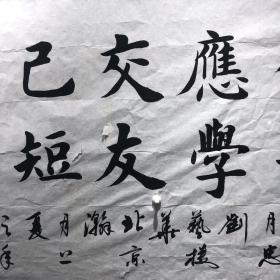 應學
交友
已短
月忠
劉
藝
華
北京
瀚
月上
夏
之年